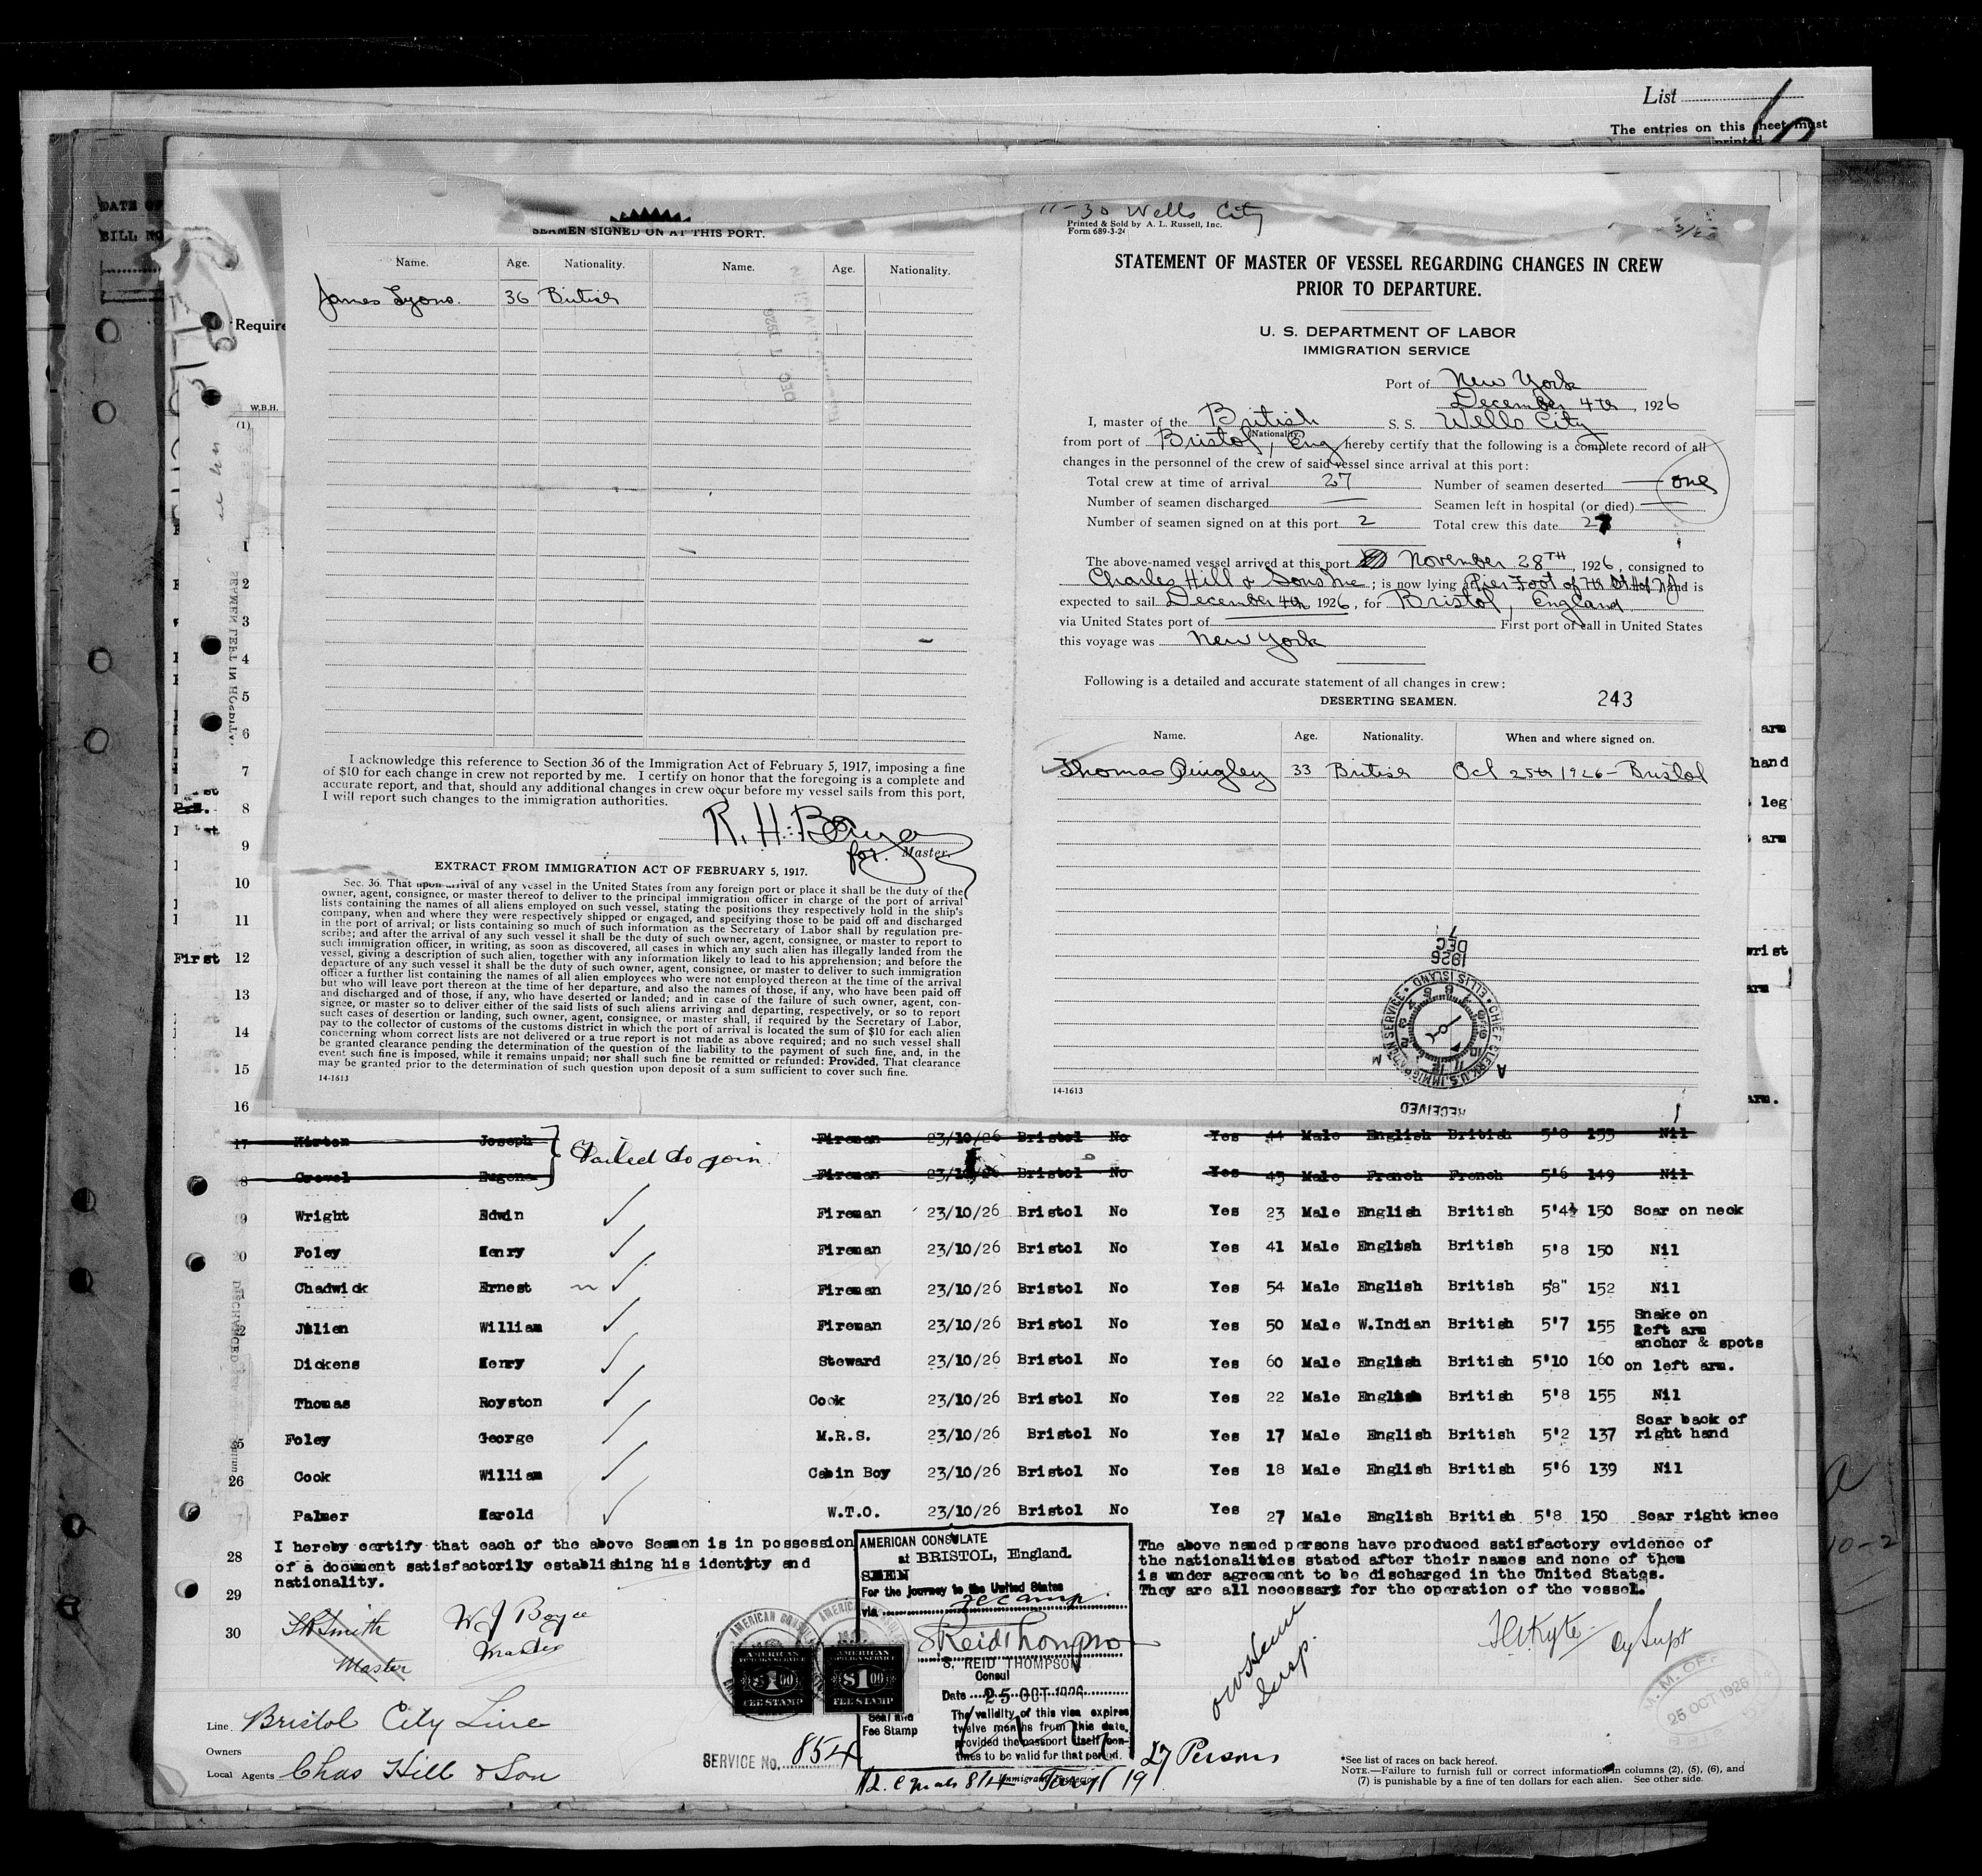 List
The entries on this sheet must
printed
DATE OF
BILL NO
Require
W.B.H.
(1)
SEAMEN SIGNED ON AT THIS PORT.
Name. Age. Nationality. Name. Age. Nationality.
James Lyons. 36 British
DEC 7 1926
I acknowledge this reference to Section 36 of the Immigration Act of February 5, 1917, imposing a fine
of $10 for each change in crew not reported by me. I certify on honor that the foregoing is a complete and
accurate report, and that, should any additional changes in crew occur before my vessel sails from this port,
I will report such changes to the immigration authorities.
R. H.
for. Master.
EXTRACT FROM IMMIGRATION ACT OF FEBRUARY 5, 1917.
Sec. 36. That upon arrival of any vessel in the United States from any foreign port or place it shall be the duty of the
owner, agent, consignee, or master thereof to deliver to the principal immigration officer in charge of the port of arrival
lists containing the names of all aliens employed on such vessel, stating the positions they respectively hold in the ship's
company, when and where they were respectively shipped or engaged, and specifying those to be paid off and discharged
in the port of arrival; or lists containing so much of such information as the Secretary of Labor shall by regulation pre-
scribe; and after the arrival of any such vessel it shall be the duty of such owner, agent, consignee, or master to report to
such immigration officer, in writing, as soon as discovered, all cases in which any such alien has illegally landed from the
vessel, giving a description of such alien, together with any information likely to lead to his apprehension; and before the
departure of any such vessel it shall be the duty of such owner, agent, consignee, or master to deliver to such immigration
officer a further list containing the names of all alien employees who were not employed thereon at the time of the arrival
but who will leave port thereon at the time of her departure, and also the names of those, if any, who have been paid off
and discharged and of those, if any, who have deserted or landed; and in case of the failure of such owner, agent, con-
signee, or master so to deliver either of the said lists of such aliens arriving and departing, respectively, or so to report
such cases of desertion or landing, such owner, agent, consignee, or master shall, if required by the Secretary of Labor,
pay to the collector of customs of the customs district in which the port of arrival is located the sum of $10 for each alien
concerning whom correct lists are not delivered or a true report is not made as above required; and no such vessel shall
be granted clearance pending the determination of the question of the liability to the payment of such fine, and, in the
event such fine is imposed, while it remains unpaid; nor shall such fine be remitted or refunded: Provided, That clearance
may be granted prior to the determination of such question upon deposit of a sum sufficient to cover such fine.
14-1613
11-30 Wells City
Printed & Sold by A. L. Russell, Inc.
Form 689-3-24
STATEMENT OF MASTER OF VESSEL REGARDING CHANGES IN CREW
PRIOR TO DEPARTURE.
U. S. DEPARTMENT OF LABOR
IMMIGRATION SERVICE
Port of New York
December 4th, 1926
I, master of the British S. S. Wells City
(Nationality)
from port of Bristol, Eng hereby certify that the following is a complete record of all
changes in the personnel of the crew of said vessel since arrival at this port:
Total crew at time of arrival 27 Number of seamen deserted one
Number of seamen discharged — Seamen left in hospital (or died) —
Number of seamen signed on at this port 2 Total crew this date 27
The above-named vessel arrived at this port November 28TH, 1926, consigned to
Charles Hill & Sons Inc; is now lying at Pier Foot of 7th St Hob NJ and is
expected to sail December 4th 1926, for Bristol, England
via United States port of First port of call in United States
this voyage was New York
Following is a detailed and accurate statement of all changes in crew:
DESERTING SEAMEN. 243
Name. Age. Nationality. When and where signed on.
Thomas Quigley 33 British Oct 25th 1926 - Bristol
1926
DEC
7
CHIEF CLERK, U.S. IMMIGRATION SERVICE • ELLIS ISLAND
A M
RECEIVED
14-1613
1
2
3
4
5
6
7
8
9
10
11
First 12
13
14
15
16
arm
hand
leg
arm
wrist
arm
arm.
17 Kirton Joseph Failed to join Fireman 23/10/26 Bristol No Yes 44 Male English British 5'8 155 Nil
18 Crevel Eugene Fireman 23/10/26 Bristol No Yes 43 Male French French 5'6 149 Nil
19 Wright Edwin Fireman 23/10/26 Bristol No Yes 23 Male English British 5'4½ 150 Scar on neck
20 Foley Henry Fireman 23/10/26 Bristol No Yes 41 Male English British 5'8 150 Nil
Chadwick Ernest Fireman 23/10/26 Bristol No Yes 54 Male English British 5'8" 152 Nil
Julien William Fireman 23/10/26 Bristol No Yes 50 Male W.Indian British 5'7 155 Snake on left arm
Dickens Henry Steward 23/10/26 Bristol No Yes 60 Male English British 5'10 160 anchor & spots on left arm.
Thomas Royston Cook 23/10/26 Bristol No Yes 22 Male English British 5'8 155 Nil
25 Foley George M.R.S. 23/10/26 Bristol No Yes 17 Male English British 5'2 137 Scar back of right hand
26 Cook William Cabin Boy 23/10/26 Bristol No Yes 18 Male English British 5'6 139 Nil
Palmer Harold W.T.O. 23/10/26 Bristol No Yes 27 Male English British 5'8 150 Scar right knee
28
29
30
I hereby certify that each of the above Seamen is in possession
of a document satisfactorily establishing his identity and
nationality.
Smith
Master
W J Boyce
Master
AMERICAN CONSULATE
at BRISTOL, England.
SEEN
For the journey to the United States
via Fecamp
S Reid Thompson
S. REID THOMPSON
Consul
Date 25 OCT 1926
The validity of this visa expires
twelve months from this date,
provided the passport itself con-
tinues to be valid for that period.
Seal and
Fee Stamp
AMERICAN
FOREIGN SERVICE
$1.00
FEE STAMP
AMERICAN
FOREIGN SERVICE
$1.00
FEE STAMP
SERVICE No. 854
Immigrant Inspector
27 Persons
The above named persons have produced satisfactory evidence of
the nationalities stated after their names and none of them
is under agreement to be discharged in the United States.
They are all necessary for the operation of the vessel.
Insp.
Dy Supt
M. M. OFF
25 OCT 1926
Line Bristol City Line
Owners
Local Agents Chas Hill & Son
*See list of races on back hereof.
NOTE.—Failure to furnish full or correct information in columns (2), (5), (6), and
(7) is punishable by a fine of ten dollars for each alien. See other side.